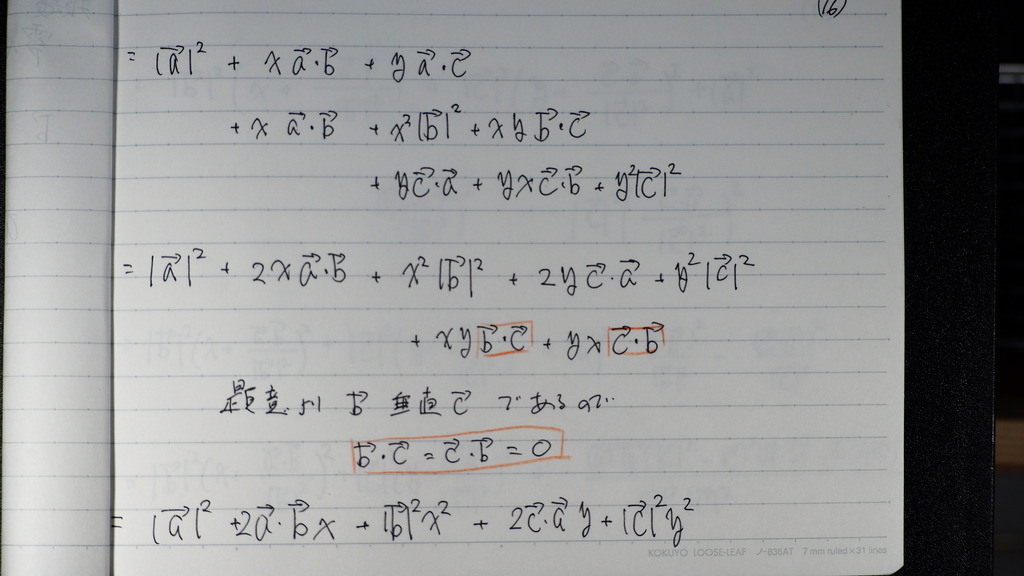 (16)
= |a⃗|² + x a⃗·b⃗ + y a⃗·c⃗
+ x a⃗·b⃗ + x²|b⃗|² + x y b⃗·c⃗
+ y c⃗·a⃗ + y x c⃗·b⃗ + y²|c⃗|²
= |a⃗|² + 2 x a⃗·b⃗ + x²|b⃗|² + 2 y c⃗·a⃗ + y²|c⃗|²
+ x y b⃗·c⃗ + y x c⃗·b⃗
題意より b⃗ 垂直 c⃗ であるので
b⃗·c⃗ = c⃗·b⃗ = 0
= |a⃗|² + 2a⃗·b⃗ x + |b⃗|² x² + 2c⃗·a⃗ y + |c⃗|² y²
KOKUYO LOOSE-LEAF ノ-836AT 7 mm ruled×31 lines